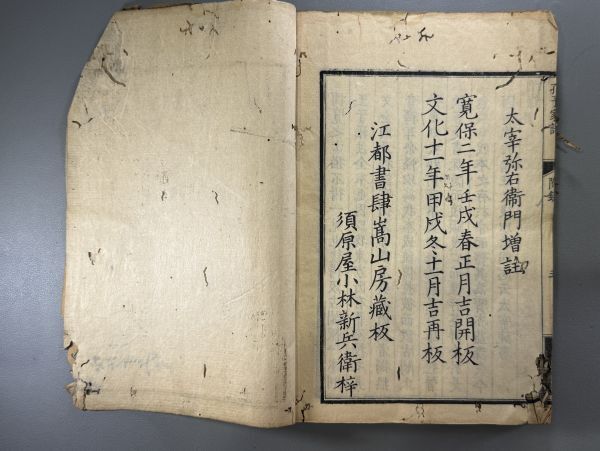 太宰弥右衛門増註
寛保二年壬戌春正月吉開板
文化十一年甲戌冬十一月吉再板
江都書肆嵩山房藏板
須原屋小林新兵衛梓